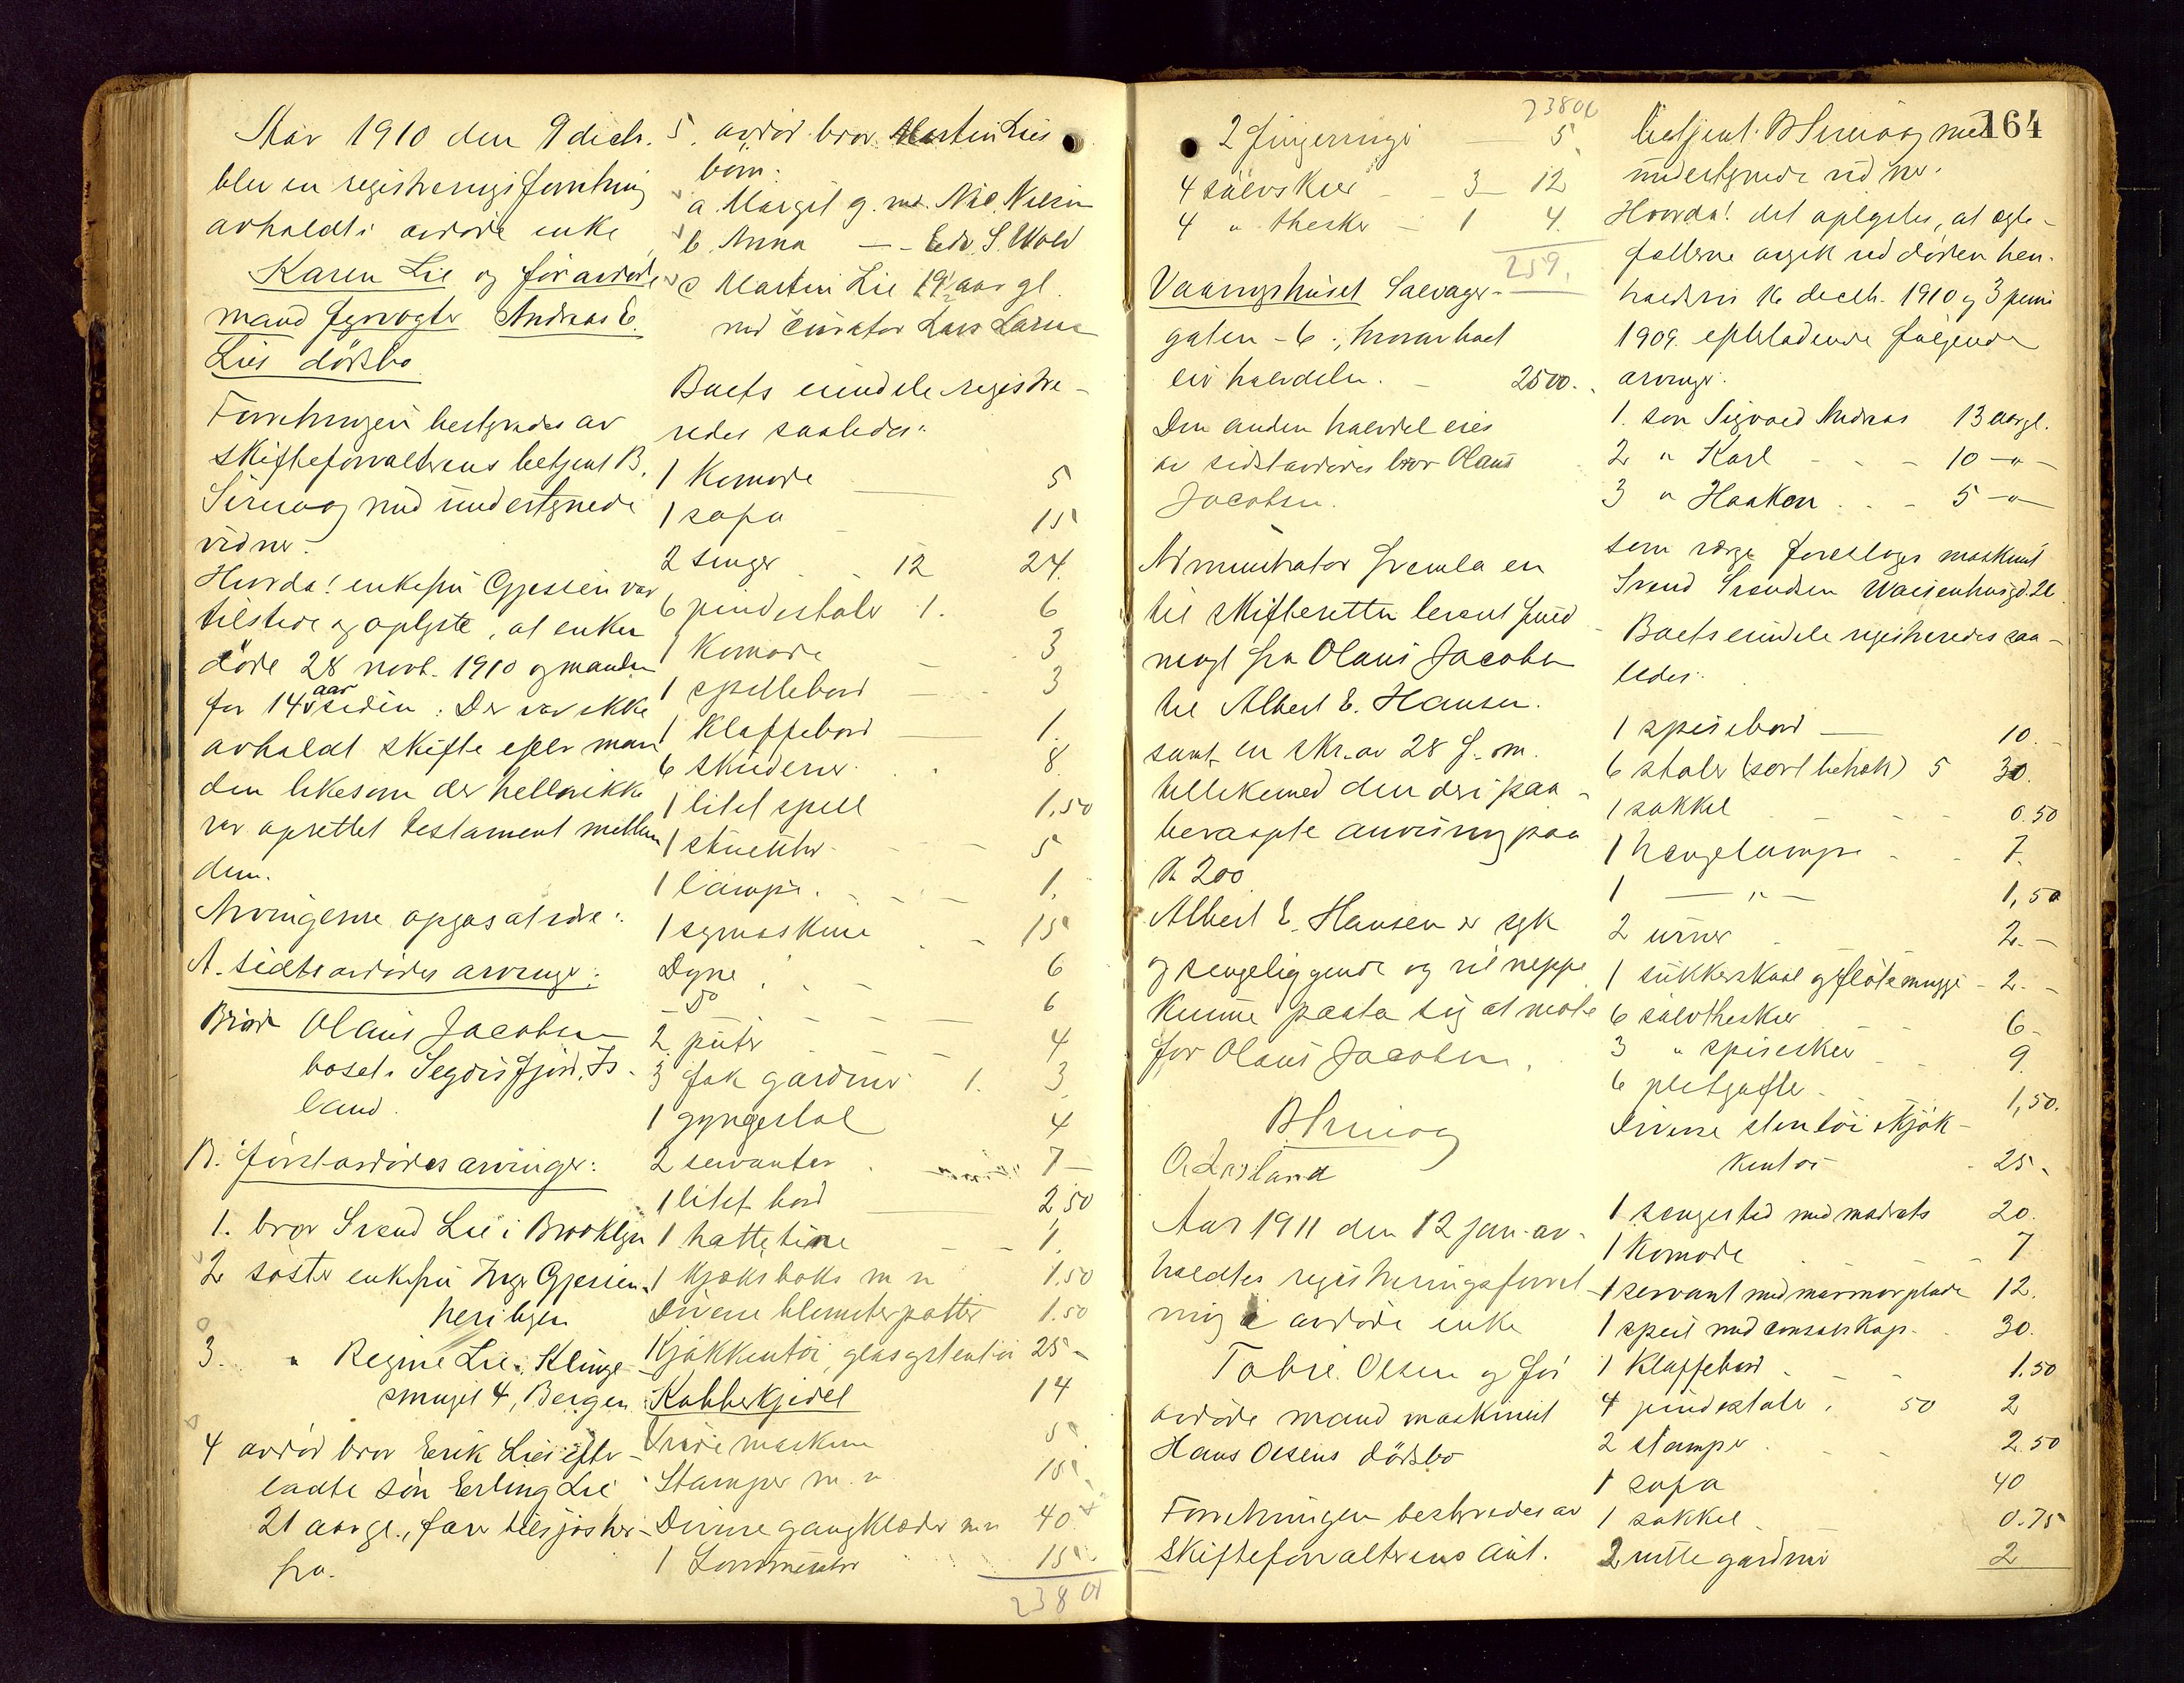 Aar 1910 den 9 decb.
blev en registreringsforretning
avholdt i avdøde enke
Karen Lie og før avdøde
mand fyrvogter Andreas E.
Lies dødsbo
Forretningen bestyredes av
skifteforvalterens betjent B.
Sirevaag med undertegnede
vidner.
Hvorda! enkefru Gjessen var
tilstede og oplyste, at enken
døde 28 novb. 1910 og manden
for 14 aar siden. Der var ikke
avholdt skifte efter man
den likesom der heller ikke
var oprettet testament mellem
dem.
Arvingerne opgas at være:
A. sidstavdødes arvinger:
Bror Olaus Jacobsen
bosat i Segdisfjord, Is-
land.
B. førstavdødes arvinger:
1. bror Svend Lie i Brooklyn
2 søster enkefru Inge Gjessen
her i byen
3. " Regine Lie, Klinge
smuget 4, Bergen
4 avdød bror Erik Lies efter-
ladte søn Erling Lie
21 aar gl., far tilsjøs her-
fra.
5. avdød bror Martin Lies
børn:
a. Margit g. m. Nil. Nilsen
b. Anna — - Edv. S. Wold
c Martin Lie 19½ aar gl.
med curator Lars Larsen
Boets eiendele registre-
redes saaledes:
1 Komode 5
1 sofa 15
2 senger 12 24.
6 pindestoler 1. 6
1 Komode 3
1 spillebord 3
1 Klaffebord 1.
6 skilderier 8.
1 litet speil 1,50
1 stueuhr 5
1 lampe 1.
1 symaskine 15
Dyne 6
- do 6
2 puter 4
3 fak gardiner 1. 3
1 gyngestol 4
2 servanter 7 —
1 litet bord 2,50
1 hattetine 1.
1 Kjæksboks m m 1.50
Diverse blomsterpotter 1.50
Kjøkkentøi, glas og stentøi 25 —
Kobberkjedel 14
Vride maskine 5
Stamper m. v. 15
Diverse gangklæder m m 40
1 Lommeuhr 15
238 00
23800
2 fingerringe 5
4 sølvskeer 3 — 12
4 " theskeer 1 4.
259.
Vaaningshuset Salvager-
gaten - 6, hvorav boet
eier halvdelen. 2500.
Den anden halvdel eies
av sidstavdødes bror Olaus
Jacobsen.
Administrator fremla en
til skifteretten leveret fuld
magt fra Olaus Jacobsen
til Albert E. Hansen.
samt en skr. av 28 f. m.
tillikemed den deri paa-
beraapte anvisning paa
Kr 200
Albert E. Hansen er syk
og sengeliggende og vil neppe
kunne paata sig at møte
for Olaus Jacobsen.
B Sirevaag
O. Lusland
Aar 1911 den 12 jan. av-
holdtes registreringsforret
ning i avdøde enke
Tobie Olsen og før
avdøde mand maskinist
Hans Olsens dødsbo
Forretningen bestyredes av
skifteforvalterens aut.
164
betjent B Sirevaag med
undertegnede vidner.
Hvorda! det oplystes, at egte-
fællerne avgik ved døden hen-
holdsvis 16 decb. 1910 og 3 juni
1909. efterladende følgende
arvinger:
1. søn Sigvald Andreas 13 aar gl.
2 " Karl 10 - " -
3 " Haakon 5 - "
som verge foreslages maskinist
Svend Svendsen Waisenhusgd. 26
Boets eiendele registreredes saa-
ledes:
1 spisebord 10.
6 stoler (sort betræk) 5 30.
1 sokkel 0.50
1 hængelampe 7.
1 — " — 1,50
2 urner 2. —
1 sukkerskaal og fløtemugge 2. -
6 sølvtheskeer 6 -
3 " spiseskeer 9.
6 pletgafler 1,50.
Diverse stentøi Kjøk-
kentøi 25.
1 sengested med madrats 20.
1 Komode 7
1 servant med marmorplade 12.
1 speil med consolskap 30.
1 Klaffebord 1.50
4 pindestole 50 2
2 stamper 2.50
1 sofa 40
1 sokkel 0.75
2 rullegardiner 2